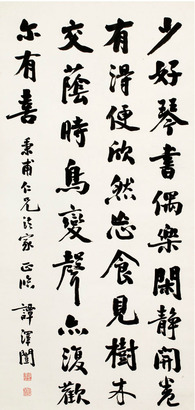 少好琴書偶樂閑靜開卷
有得便欣然忘食見樹木
交蔭時鳥變聲亦復歡
尔有喜
秉甫仁兄法家正臨 譚澤闓